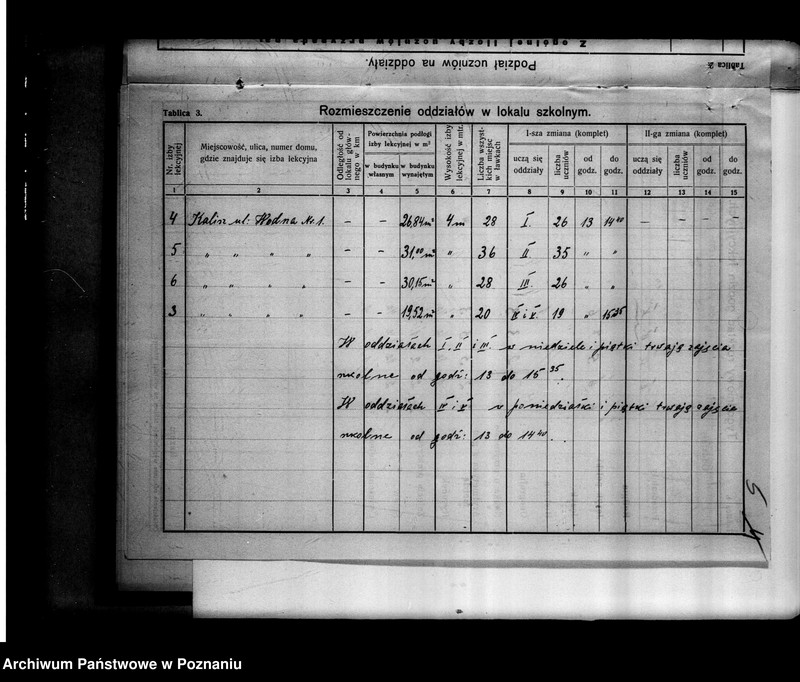 Z ogólnej liczby uczniów przypada na:
Podział uczniów na oddziały.
Tablica 2
Tablica 3.
Rozmieszczenie oddziałów w lokalu szkolnym.
Nr. izby lekcyjnej
Miejscowość, ulica, numer domu, gdzie znajduje się izba lekcyjna
Odległość od lokalu głównego w km
Powierzchnia podłogi izby lekcyjnej w m²
w budynku własnym
w budynku wynajętym
Wysokość izby lekcyjnej w mtr.
Liczba wszystkich miejsc w ławkach
I-sza zmiana (komplet)
II-ga zmiana (komplet)
uczą się oddziały
liczba uczniów
od godz.
do godz.
uczą się oddziały
liczba uczniów
od godz.
do godz.
1 2 3 4 5 6 7 8 9 10 11 12 13 14 15
4 Kalisz ul: Wodna No 1. – – 26,84 m² 4 m 28 I. 26 13 14⁴⁰ – – – –
5 „ „ „ „ – – 31,00 m² „ 36 II. 35 „ „
6 „ „ „ „ – – 30,15 m² „ 28 III. 26 „ „
3 „ „ „ „ – – 19,52 m² „ 20 IV i V. 19 „ 15³⁵
W oddziałach I, II i III. w niedziele i piątki trwają zajęcia
szkolne od godz: 13 do 15³⁵.
W oddziałach IV i V w poniedziałki i piątki trwają zajęcia
szkolne od godz: 13 do 14⁴⁰.
5
Archiwum Państwowe w Poznaniu